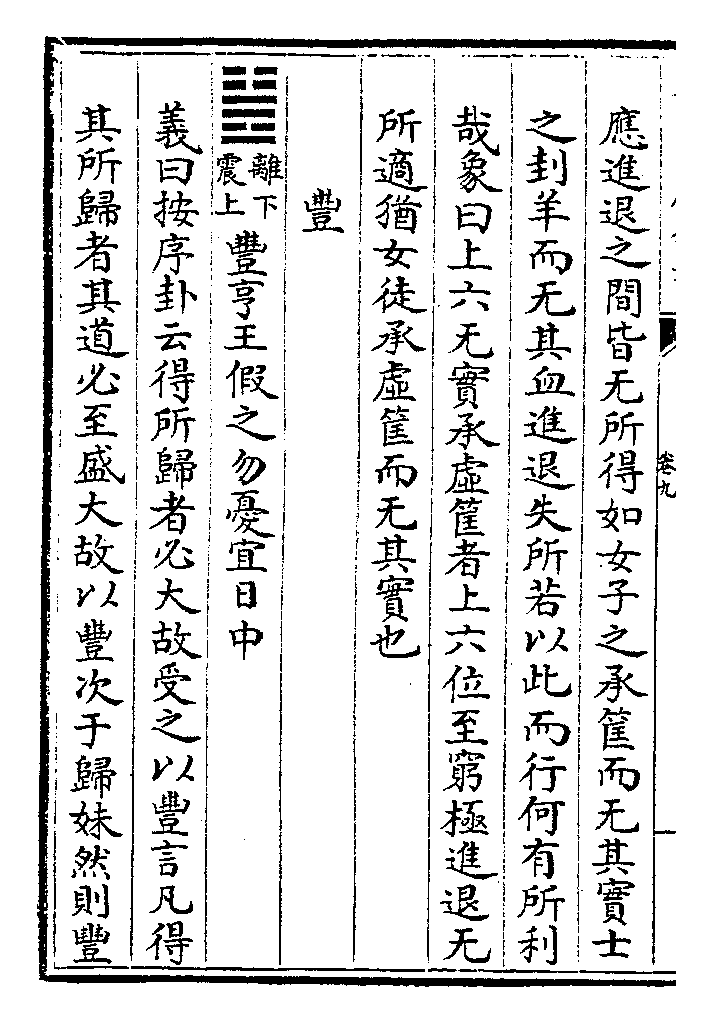 應進退之間皆无所得如女子之承筐而无其實士
之刲羊而无其血進退失所若以此而行何有所利
哉象曰上六无實承虛筐者上六位至窮極進退无
所適猶女徒承虛筐而无其實也
豐
離下
震上
豐亨王假之勿憂宜日中
義曰按序卦云得所歸者必大故受之以豐言凡得
其所歸者其道必至盛大故以豐次于歸妹然則豐
卷九